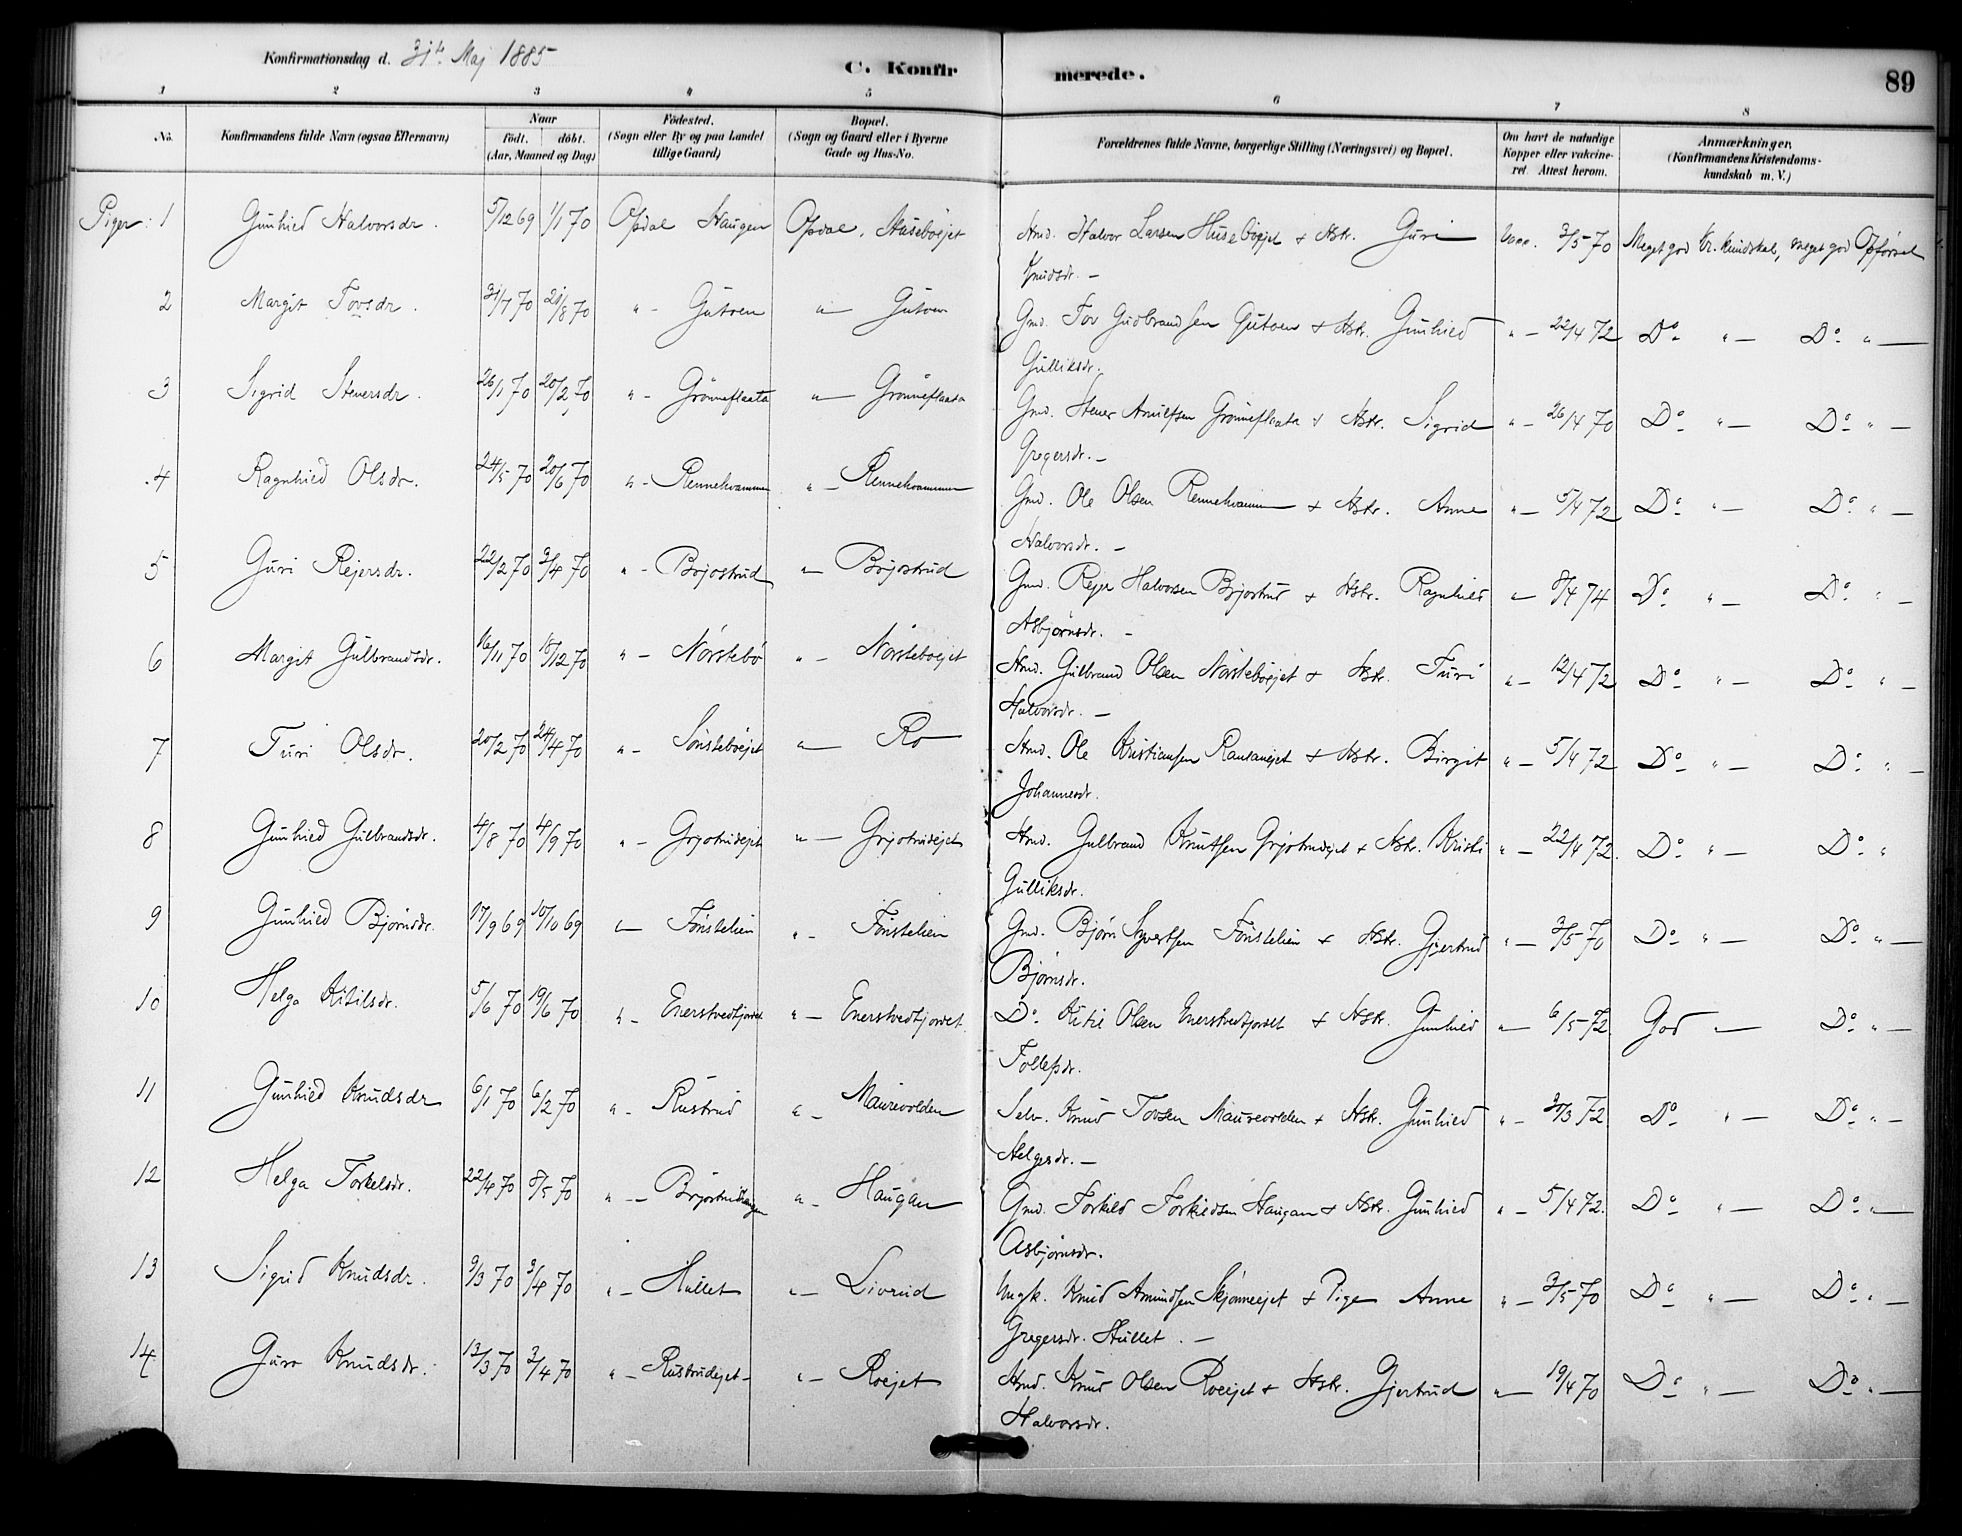 Konfirmationsdag d. 31te Maj 1885
C. Konfirmerede.
89
1 2 3 4 5 6 7 8
No. Konfirmandens fulde Navn (ogsaa Efternavn) Naar født. døbt. (Aar, Maaned og Dag) Fødested. (Sogn eller By og paa Landet tillige Gaard) Bopæl. (Sogn og Gaard eller i Byerne Gade og Hus-No. Forældrenes fulde Navne, borgerlige Stilling (Næringsvei) og Bopæl. Om havt de naturlige Kopper eller vakcineret. Attest herom. Anmærkninger. (Konfirmandens Kristendomskundskab m. V.)
Piger: 1 Gunhild Halvorsdr. 5/12 69 1/1 70 Opdal Haugen Opdal, Husebøejet Hmd. Halvor Larsen Husebøejet & Hstr. Guri Vacc. 3/5 70 Meget god Kr. kundskab, meget god Opførsel
Knudsdr. —
2 Margit Tovsdr. 31/7 70 21/8 70 " - Gutoen " — Gutoen Gmd. Tov Gudbrandsen Gutoen & Hstr. Gunhild " — 22/4 72 Do " — Do " —
Gulliksdr.
3 Sigrid Stenersdr. 26/1 70 20/2 70 " - Grønneflaata " — Grønneflaata Gmd. Stener Arnulfsen Grønneflaata & Hstr. Sigrid " — 26/4 70 Do " — Do " —
Gregersdr. —
4 Ragnhild Olsdr. 24/5 70 20/6 70 " - Rennehvammen " — Rennehvammen Gmd. Ole Olsen Rennehvammen & Hstr. Anne " — 5/4 72 Do " — Do " —
Halvorsdr. —
5 Guri Rejersdr. 22/2 70 3/4 70 " - Brjostrud " — Brjostrud Gmd. Rejer Halvorsen Brjostrud & Hstr. Ragnhild " — 8/4 74 Do " — Do " —
Asbjørnsdr. —
6 Margit Gulbrandsdr. 16/11 70 18/12 70 " - Nørstebø " — Nørstebøejet Hmd. Gulbrand Olsen Nørstebøejet & Hstr. Turi " — 12/4 72 Do " — Do " —
Halvorsdr. —
7 Turi Olsdr. 20/2 70 24/4 70 " - Sønstebøejet " — Ro Hmd. Ole Kristiansen & Hstr. Birgit " — 5/4 72 Do " — Do " —
Johannesdr.
8 Gunhild Gulbrandsdr. 4/8 70 4/9 70 " - Grjotrudejet " — Grjotrudejet Hmd. Gulbrand Knutsen Grjotrudejet & Hstr. Kristi " — 22/4 72. Do " — Do "
Gulliksdr.
9 Gunhild Bjørnsdr. 17/9 69 10/10 69 " — Fønstelien " - Fønstelien Gmd. Bjørn Syvertsen Fønstelien & Hstr. Gjertrud " — 3/5 70 Do " — Do " —
Bjørnsdr.
10 Helga Kitilsdr. 5/6 70 19/6 70 " - Enerstvedtjordet " — Enerstvedtjordet Do Kitil Olsen Enerstvedtjordet & Hstr. Gunhild " — 6/5 72 God " — Do " —
Tollefsdr.
11 Gunhild Knudsdr 6/1 70 6/2 70 " - Rustrud " - Maurevolden Selv. Knud Tovsen Maurevolden & Hstr. Gunhild " — 30/3 72 Do " — Do " —
Helgesdr. —
12 Helga Torkelsdr. 22/4 70 8/5 70 " — Brjostrudhaugen " - Haugan Gmd. Torkild Torkildsen Haugan & Hstr. Gunhild " — 5/4 72. Do " — Do " —
Asbjørnsdr.
13 Sigrid Knudsdr. 9/3 70 3/4 70 " — Hullet " — Livrud Ungk. Knud Amundsen Skjønneejet & Pige Anne " — 3/5 70 Do " — Do " —
Gregersdr. Hullet. —
14 Guro Knudsdr. 13/3 70 3/4 70 " - Rustrudejet - " — Roejet Hmd. Knud Olsen Roeejet & Hstr. Gjertrud " — 19/4 70 Do " — Do " —
Halvorsdr.